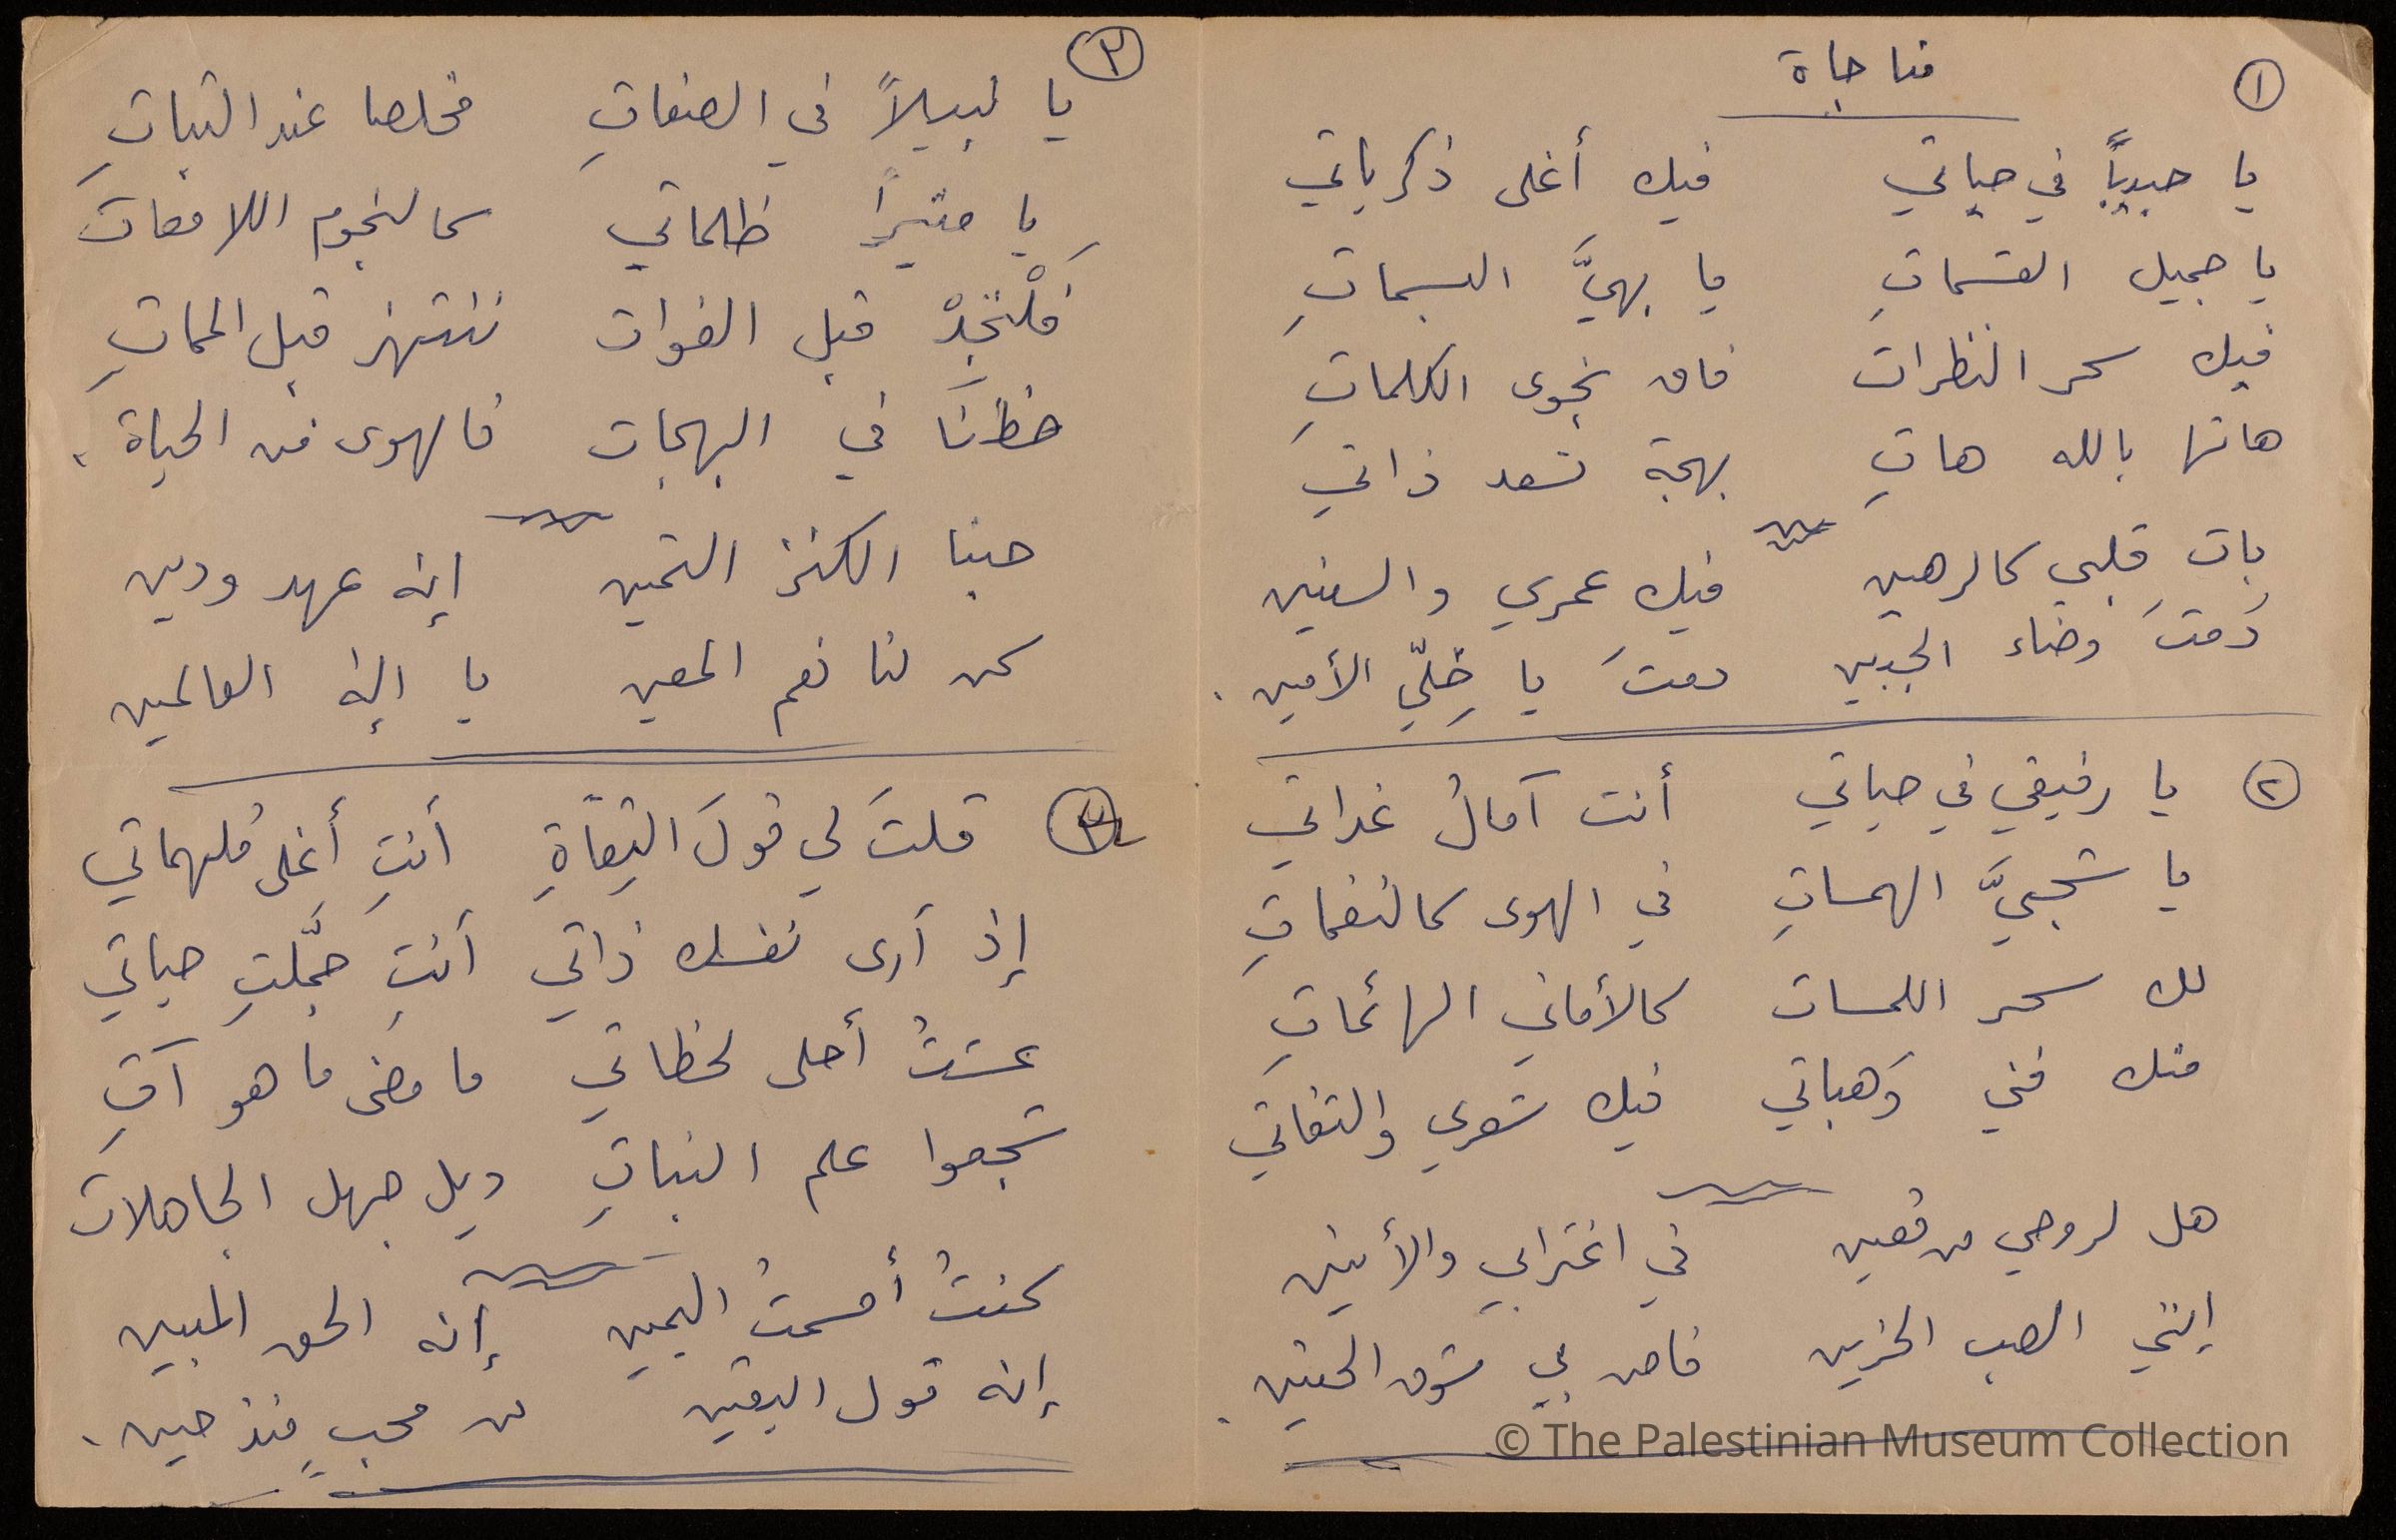 مناجاة
١
يا حبيباً في حياتي فيك أغلى ذكرياتي
يا جميل القسماتِ يا بهيَّ البسماتِ
فيك سحر النظرات فاق نجوى الكلماتِ
هاتها بالله هاتِ بهجة تسعد ذاتي
بات قلبي كالرهين فيك عمري والسنين
دمتَ وضاء الجبين دمتَ يا خِلّي الأمين .
٢
يا رفيقي في حياتي أنت آمالُ غداتي
يا شجيَّ الهمساتِ في الهوى كالنغماتِ
لك سحر اللمسات كالأماني الهائماتِ
منك فني وَهباتي فيك شعري والتفاتي
هل لروحي من معين في اغترابي والأنين
إنني الصب الحزين فاض بي شوق الحنين .
٣
يا نبيلاً في الصفاتِ مخلصا عند الثباتِ
يا منيراً ظلماتي كالنجوم اللامعات
فلْنَجِدْ قبل الفوات ننتهز قبل المماتِ
حظنَا في البهجات فالهوى من الحياة .
حبنا الكنز الثمين إنه عهد ودين
كن لنا نعم المعين يا إله العالمين
قلتَ لي قولَ الثِقاةِ أنتِ أغلى ملهماتي
إذ أرى نفسك ذاتي أنتِ جمَّلتِ حياتي
عشتُ أحلى لحظاتي ما مضى ما هو آتِ
شجعوا علم البناتِ ويل جهل الجاهلات
كنتُ أقسمتُ اليمين إنه الحق المبين
إنه قول اليقين من محبٍ منذ حين .
© The Palestinian Museum Collection